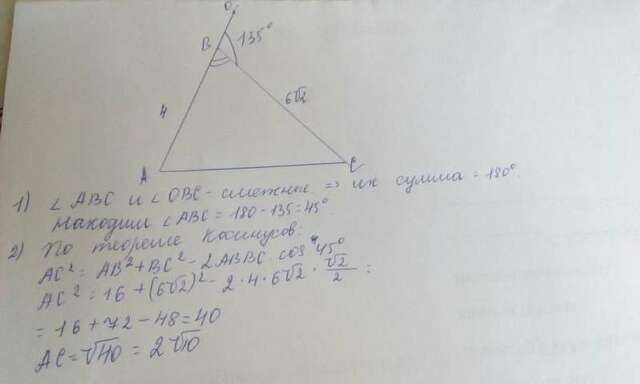 O
B 135°
4
6√2
A C
1) ∠ABC и ∠OBC - смежные => их сумма = 180°.
Находим ∠ABC = 180 - 135 = 45°.
2) По теореме косинусов:
AC² = AB² + BC² - 2ABBC · cos 45°
AC² = 16 + (6√2)² - 2 · 4 · 6√2 · √2/2 =
= 16 + 72 - 48 = 40
AC = √40 = 2√10